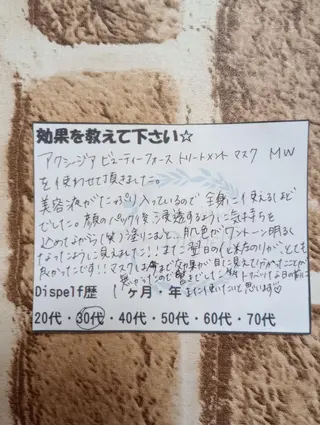 効果を教えて下さい☆
アクシージア ビューティーフォース トリートメント マスク MW
を使わせて頂きました。
美容液がたっぷり入っているので 全身に使えるほど
でした。顔のパック後、浸透するように気持ちを
込めてながら(笑)塗りこむと、肌色がワントーン明るく
なったように見えました!!また翌日の化粧のりがとても
良かったです!!マスクは今まで効果が目に見えて
Dispelf歴 1ヶ月・年 また使いたいと思います♡
20代・30代・40代・50代・60代・70代